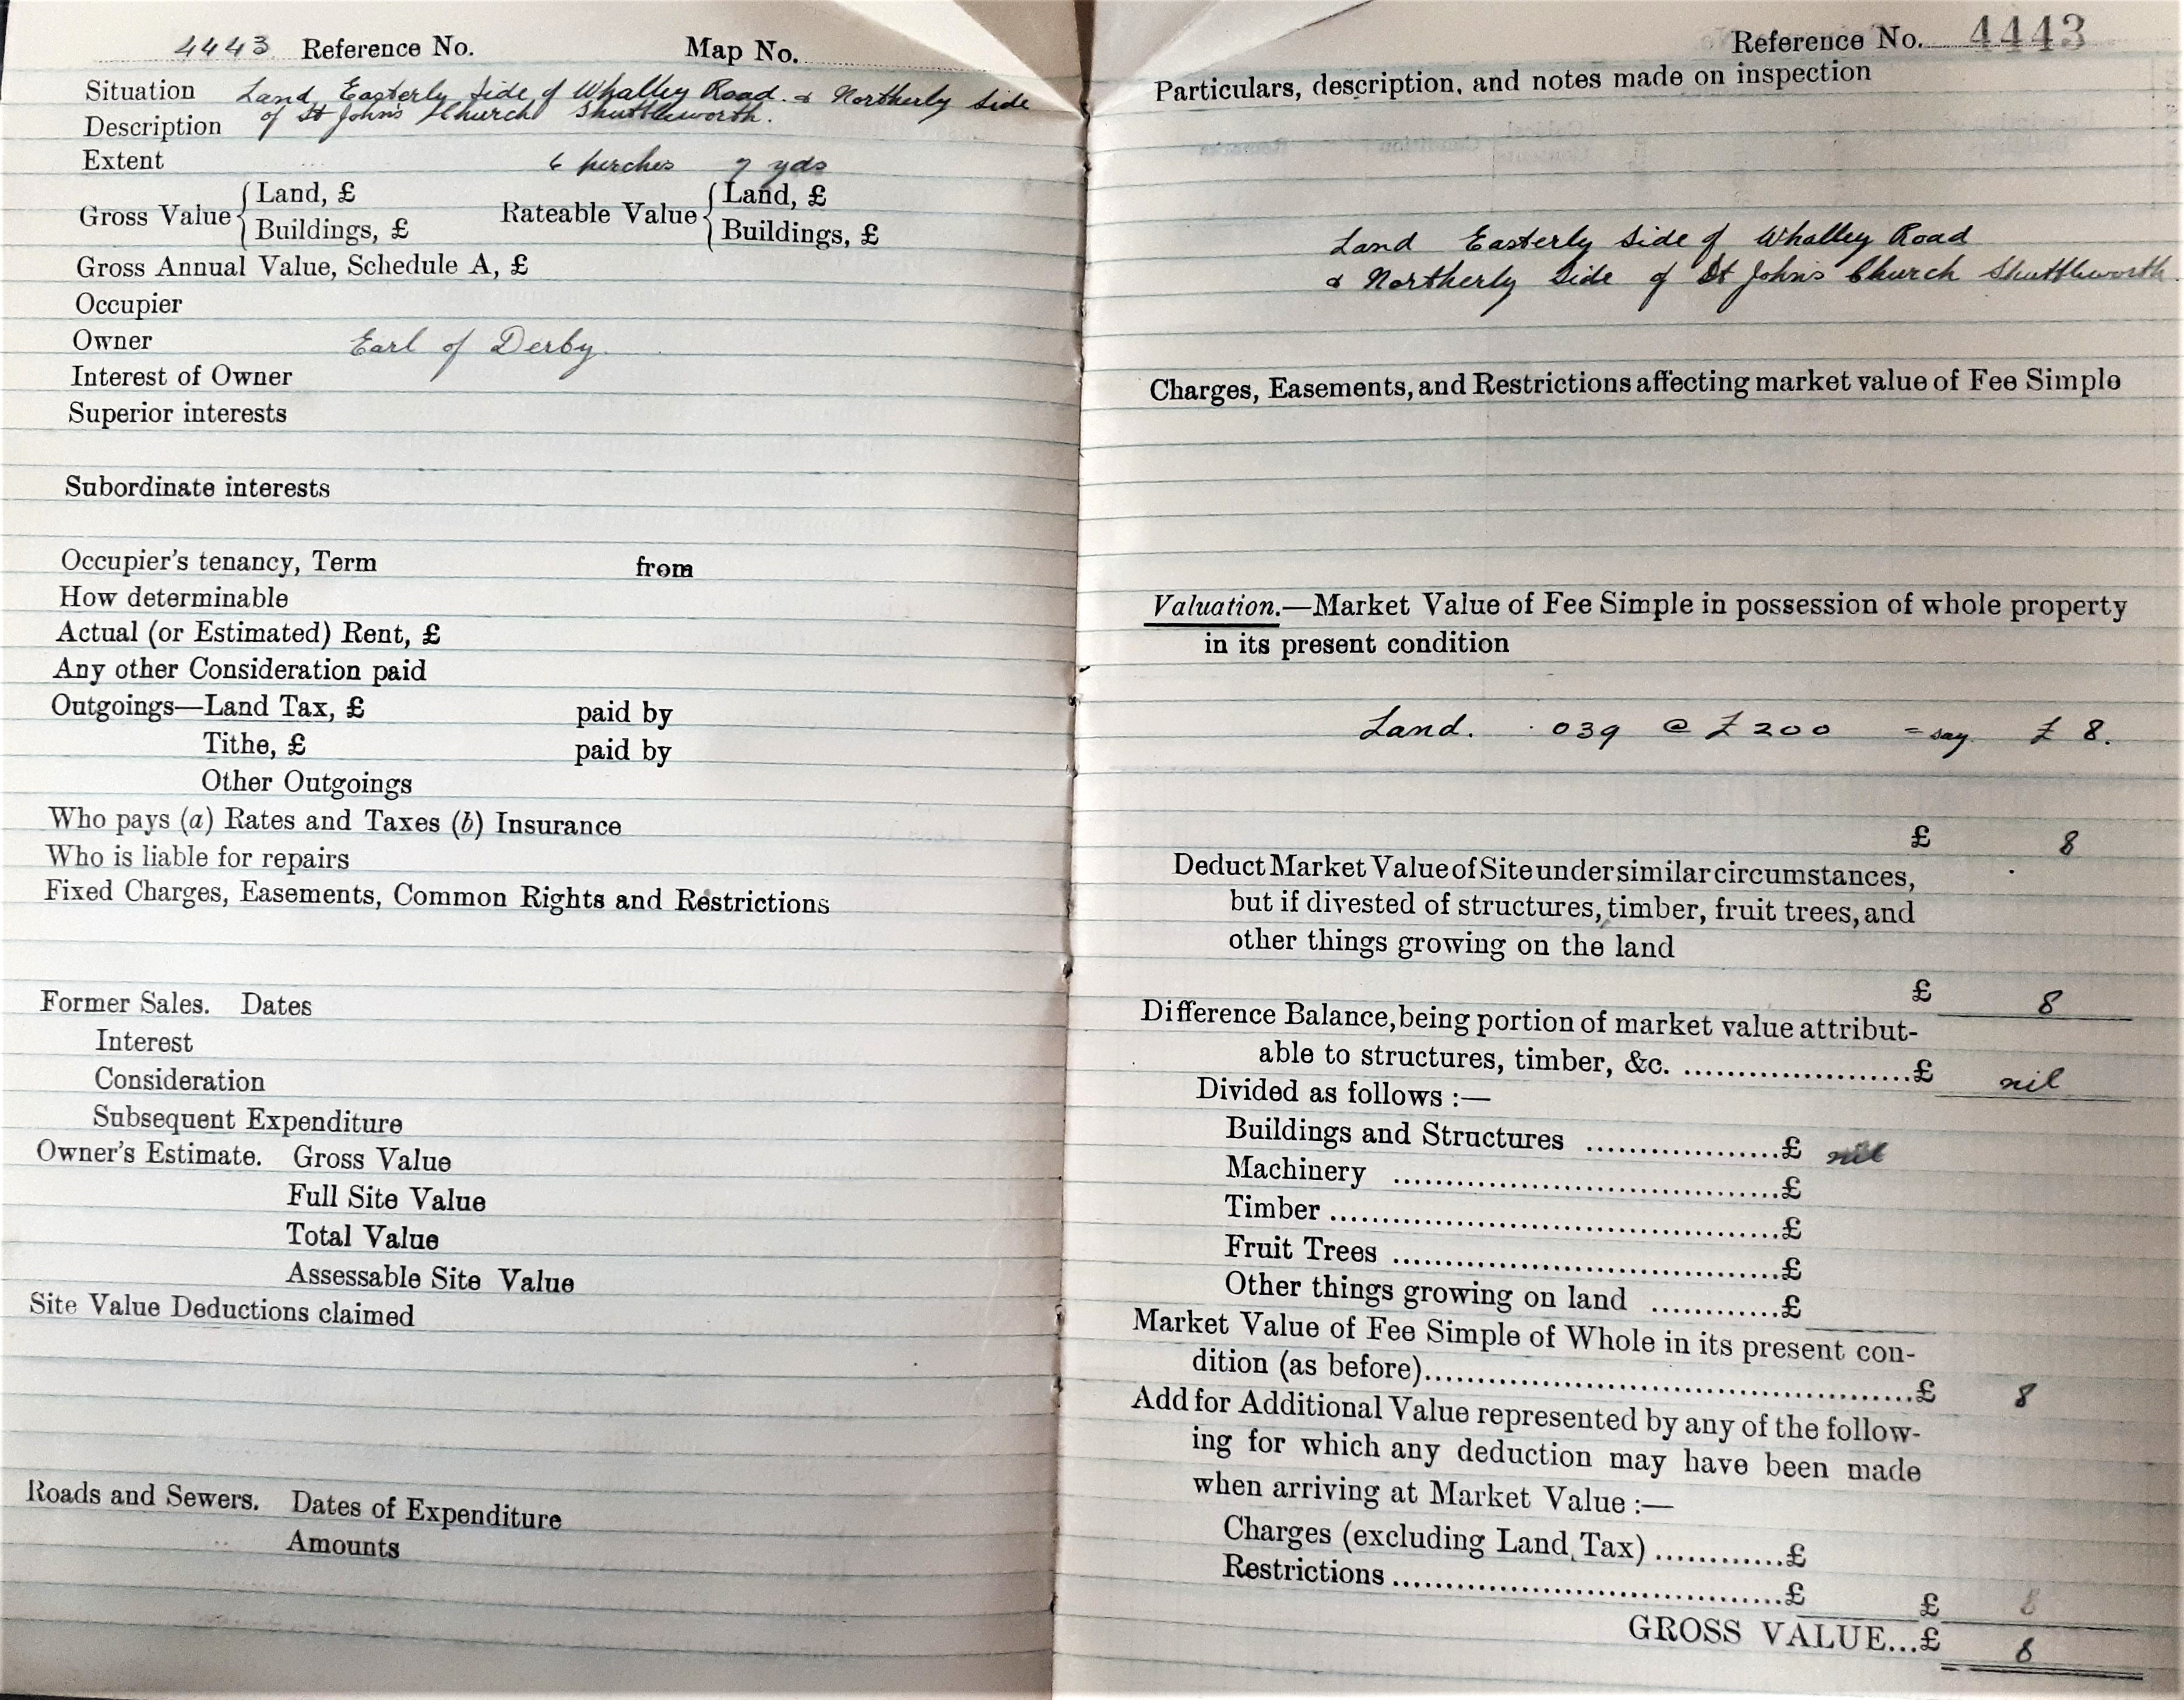 4443 Reference No. Map No.
Situation Land Easterly Side of Whalley Road & Northerly Side
Description of St John's Church Shuttleworth.
Extent 6 perches 7 yds
Gross Value { Land, £ Rateable Value { Land, £
Buildings, £ Buildings, £
Gross Annual Value, Schedule A, £
Occupier
Owner Earl of Derby.
Interest of Owner
Superior interests
Subordinate interests
Occupier's tenancy, Term from
How determinable
Actual (or Estimated) Rent, £
Any other Consideration paid
Outgoings—Land Tax, £ paid by
Tithe, £ paid by
Other Outgoings
Who pays (a) Rates and Taxes (b) Insurance
Who is liable for repairs
Fixed Charges, Easements, Common Rights and Restrictions
Former Sales. Dates
Interest
Consideration
Subsequent Expenditure
Owner's Estimate. Gross Value
Full Site Value
Total Value
Assessable Site Value
Site Value Deductions claimed
Roads and Sewers. Dates of Expenditure
Amounts
Reference No. 4443
Particulars, description, and notes made on inspection
Land Easterly Side of Whalley Road
& Northerly Side of St John's Church Shuttleworth
Charges, Easements, and Restrictions affecting market value of Fee Simple
Valuation.—Market Value of Fee Simple in possession of whole property
in its present condition
Land. .039 @ £200 = say £ 8.
£ 8
Deduct Market Value of Site under similar circumstances,
but if divested of structures, timber, fruit trees, and
other things growing on the land
£ 8
Difference Balance, being portion of market value attribut-
able to structures, timber, &c. ....................£ nil
Divided as follows :—
Buildings and Structures ..................£ nil
Machinery ....................................£
Timber ..........................................£
Fruit Trees ....................................£
Other things growing on land ............£
Market Value of Fee Simple of Whole in its present con-
dition (as before)..............................................£ 8
Add for Additional Value represented by any of the follow-
ing for which any deduction may have been made
when arriving at Market Value :—
Charges (excluding Land Tax) ............£
Restrictions ....................................£ £ 8
GROSS VALUE...£ 8